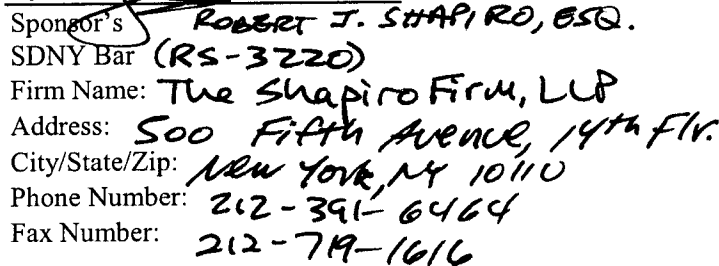 Sponsor's ROBERT J. SHAPIRO, ESQ.
SDNY Bar (RS-3220)
Firm Name: The Shapiro Firm, LLP
Address: 500 Fifth Avenue, 14th Flr.
City/State/Zip: New York, NY 10110
Phone Number: 212-391-6464
Fax Number: 212-719-1616